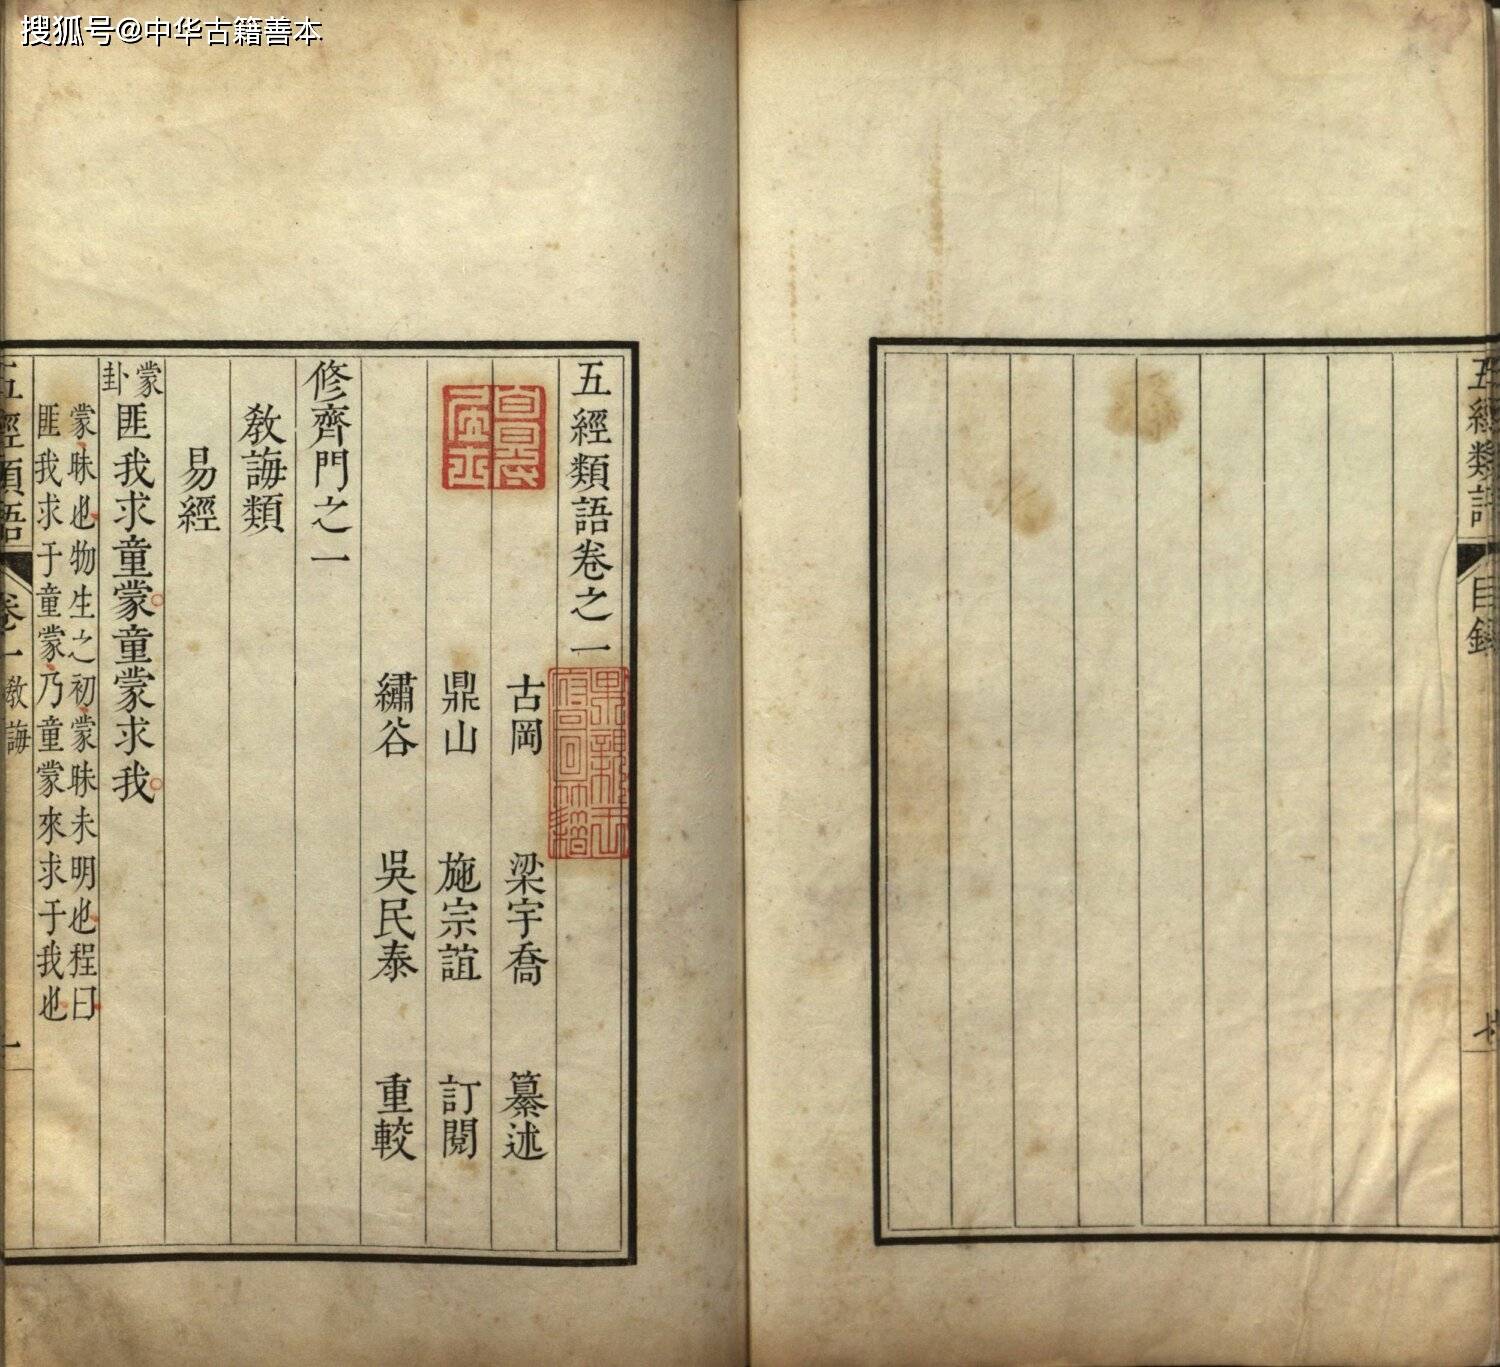 搜狐号@中华古籍善本
五經類語
目錄
五經類語卷之一
古岡 梁宇喬 纂述
鼎山 施宗誼 訂閱
繡谷 吳民泰 重較
修齊門之一
教誨類
易經
蒙卦 匪我求童蒙童蒙求我
蒙昧也物生之初蒙昧未明也程曰
匪我求于童蒙乃童蒙來求于我也
五經類語 卷一 教誨 一